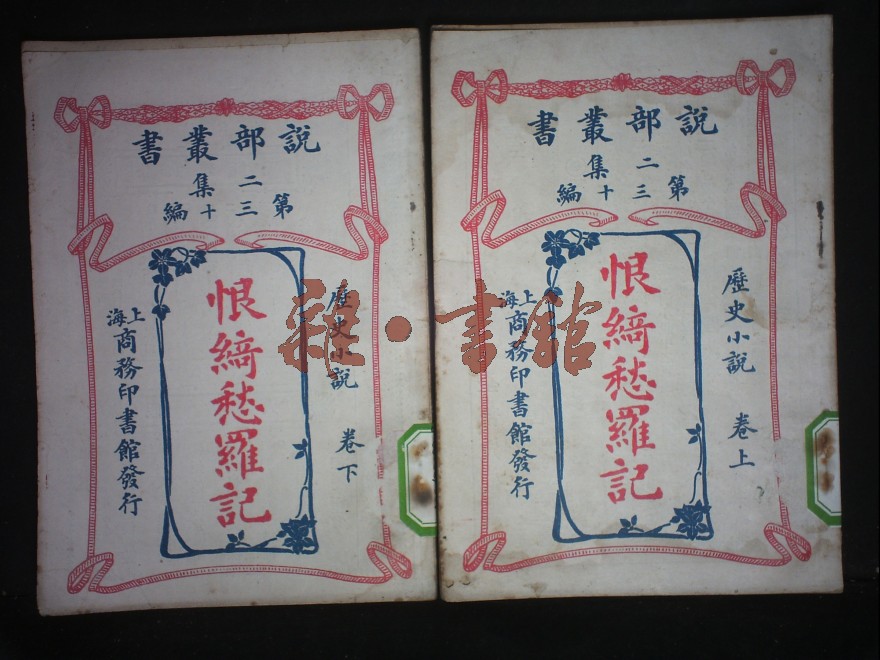 說部叢書
二集
第三十編
歷史小說 卷上
恨綺愁羅記
上海商務印書館發行
說部叢書
二集
第三十編
歷史小說 卷下
恨綺愁羅記
上海商務印書館發行
雜·書館